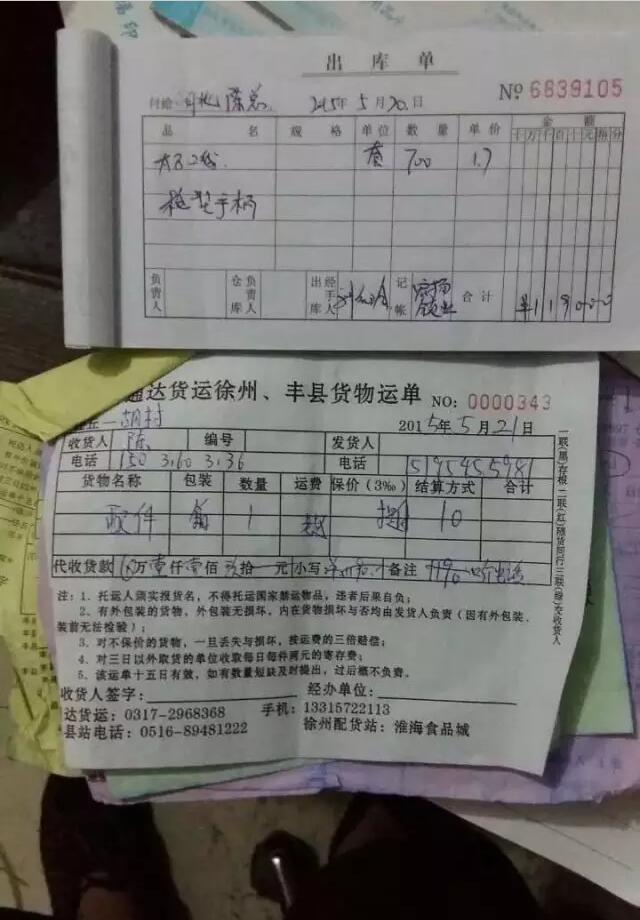 出库单
№ 6839105
付给 河北 陈总 2015年5月20日
品名 规格 单位 数量 单价 金额
千 百 十 万 千 百 十 元 角 分
套 700 1.7
枪型手柄
负责人 仓库 负责人 出库 经手人 记帐 合计 ¥1190
通达货运徐州、丰县货物运单 NO: 0000343
胡村 2015年5月21日
收货人 陈 编号 发货人
电话 150 3160 3136 电话
货物名称 包装 数量 运费 保价(3‰) 结算方式 合计
配件 箱 1 提 10
代收货款 万壹仟壹佰玖拾 元 小写 备注 1190
注:1、托运人须实报货名,不得托运国家禁运物品,违者后果自负;
2、有外包装的货物,外包装无损坏,内在货物损坏与否均由发货人负责(因有外包装、
装前无法检验);
3、对不保价的货物,一旦丢失与损坏,按运费的三倍赔偿;
4、对三日以外取货的单位收取每日每件两元的寄存费;
5、该运单十五日有效,如有数量短缺及时提出,过后概不负责。
收货人签字: 经办单位:
达货运:0317-2968368 手机:13315722113
县站电话:0516-89481222 徐州配货站:淮海食品城
一联(黑)存根 二联(红)随货同行 三联(绿)交收货人